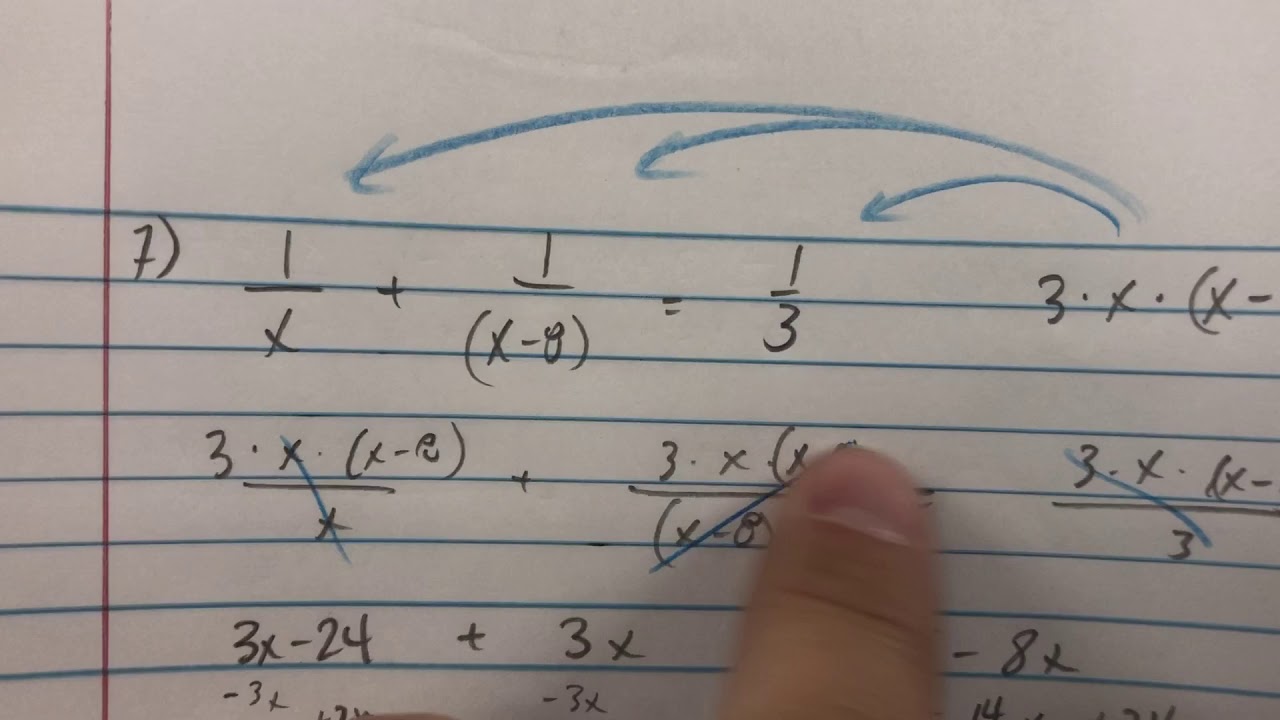 7) 1/x + 1/(x-8) = 1/3 3·x·(x-
3·x·(x-8)/x + 3·x·(x /(x-8) = 3·x·(x-/3
3x-24 + 3x - 8x
-3x +24 -3x 14 +24